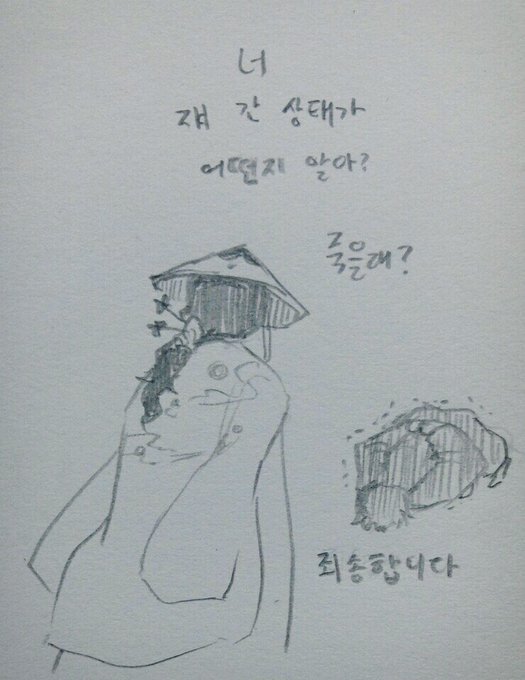 너
쟤 간 상태가
어떤지 알아?
죽을래?
죄송합니다